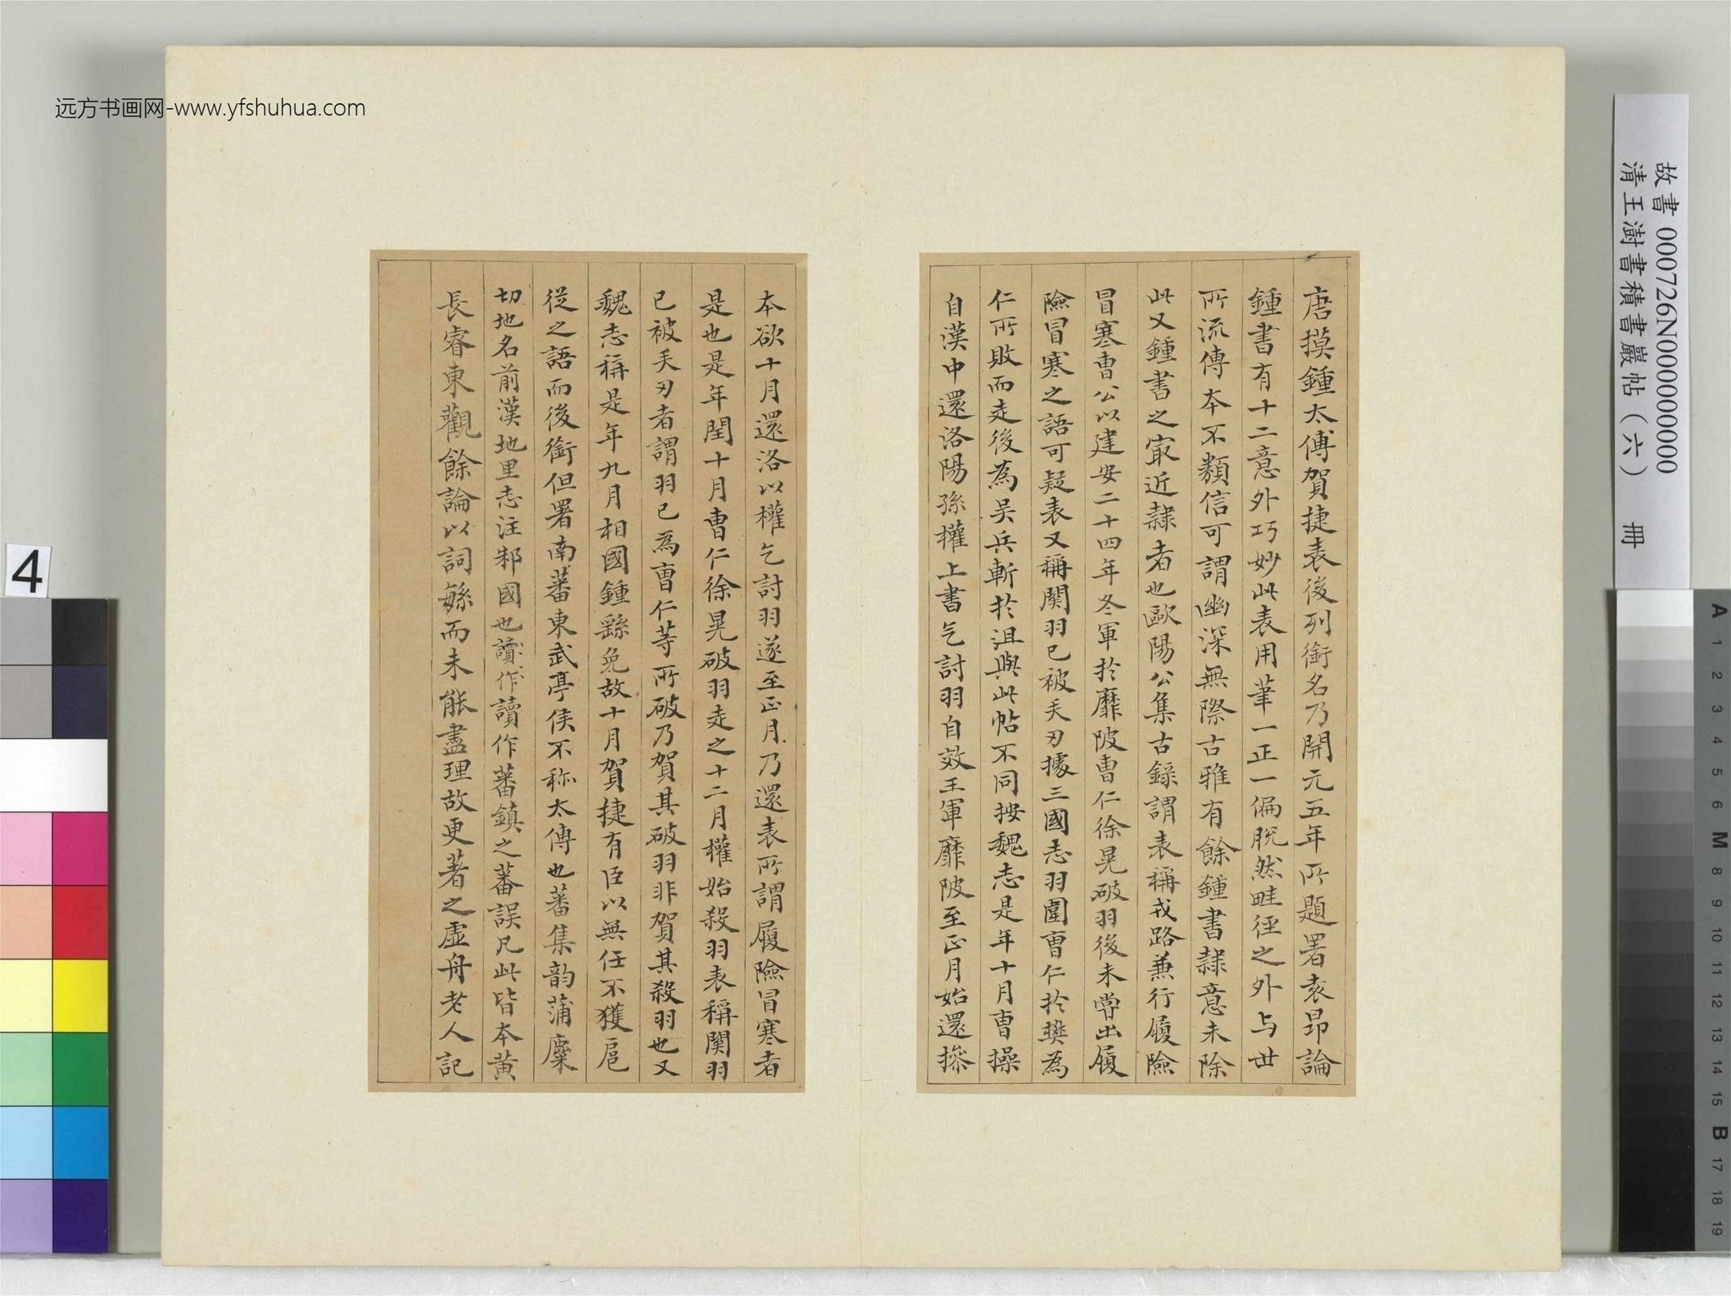 远方书画网-www.yfshuhua.com
唐摸鍾太傅賀捷表後列銜名乃開元五年所題署袁昂論
鍾書有十二意外巧妙此表用筆一正一偏脫然畦徑之外与世
所流傳本不類信可謂幽深無際古雅有餘鍾書隸意未除
此又鍾書之㝡近隸者也歐陽公集古錄謂表稱戎路兼行履險
冒寒曹公以建安二十四年冬軍於靡陂曹仁徐晃破羽後未嘗出履
險冒寒之語可疑表又稱関羽已被矢刃據三國志羽圍曹仁於樊為
仁所敗而走後為吴兵斬於沮與此帖不同按魏志是年十月曹操
自漢中還洛陽孫權上書乞討羽自效王軍靡陂至正月始還操
本欲十月還洛以權乞討羽遂至正月乃還表所謂履險冒寒者
是也是年閏十月曹仁徐晃破羽走之十二月權始殺羽表稱関羽
已被矢刃者謂羽已為曹仁等所破乃賀其破羽非賀其殺羽也又
魏志稱是年九月相國鍾繇免故十月賀捷有臣以無任不獲扈
從之語而後銜但署南蕃東武亭侯不称太傅也蕃集韵蒲麋
切地名前漢地里志注邾國也讀作讀作蕃鎮之蕃誤凡此皆本黄
長睿東觀餘論以詞繇而未能盡理故更著之虛舟老人記
故書 000726N000000000
清王澍書積書巖帖（六） 冊
4
A
1
2
3
4
5
6
M
8
9
10
11
12
13
14
15
B
17
18
19